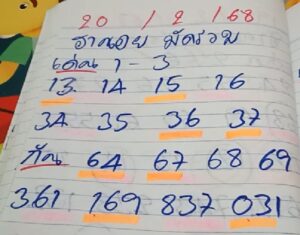 20 / 2 / 68
ฮานอย มัดรวม
เด่น 1 - 3
13 14 15 16
34 35 36 37
กัน 64 67 68 69
361 169 837 031